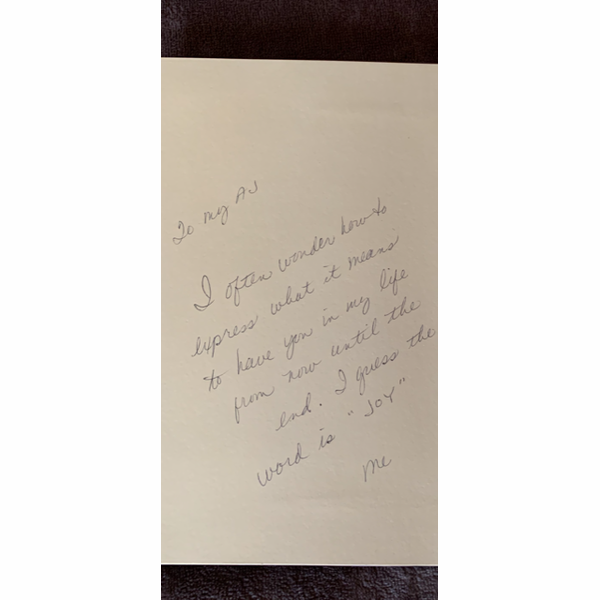 To my AJ
I often wonder how to
express what it means
to have you in my life
from now until the
end. I guess the
word is "JOY"
Me